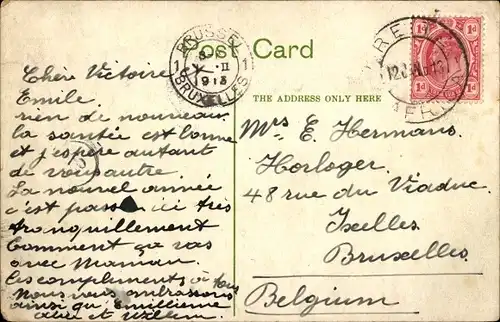 Post Card
THE ADDRESS ONLY HERE
BRUSSEL
1 1
II
1913
BRUXELLES
PRETORIA
12 JAN 13
1d 1d
1d 1d
Chère Victoire
Emile.
rien de nouveau
la santée est bonne
et j'espère autant
de vous autre.
La nouvel année
c'est passé ici très
tranquillement
Comment ça vas
avec Maman.
Les compliments à tous
Nous vous embrassons
ainsi qu'Emilienne
et Willem.
Mrs E. Hermans.
Horloger.
48 rue du Viaduc.
Ixelles
Bruxelles.
Belgium